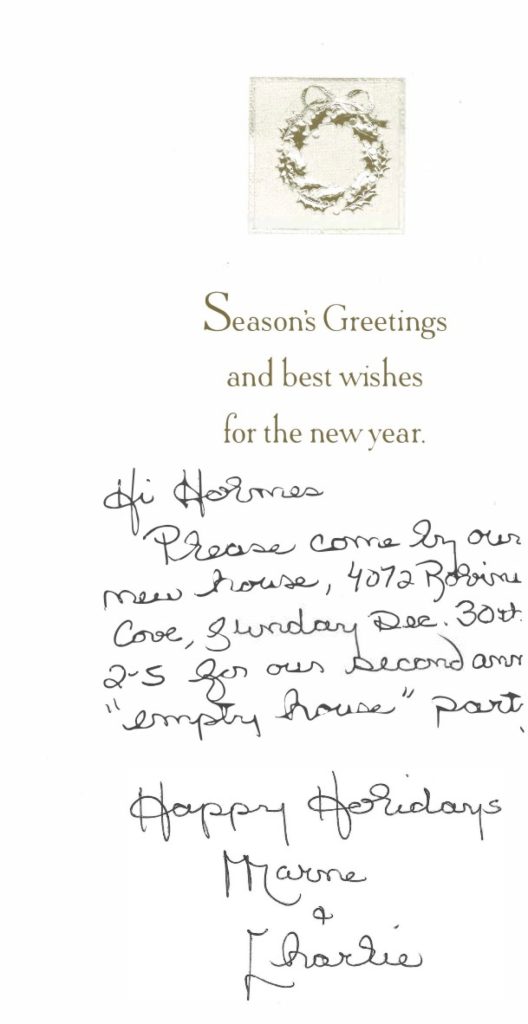 Season's Greetings
and best wishes
for the new year.
Hi Holmes
Please come by our
new house, 4072
Cove, Sunday Dec. 30th
2-5 for our second ann
"empty house" part
Happy Holidays
Marne
&
Charlie